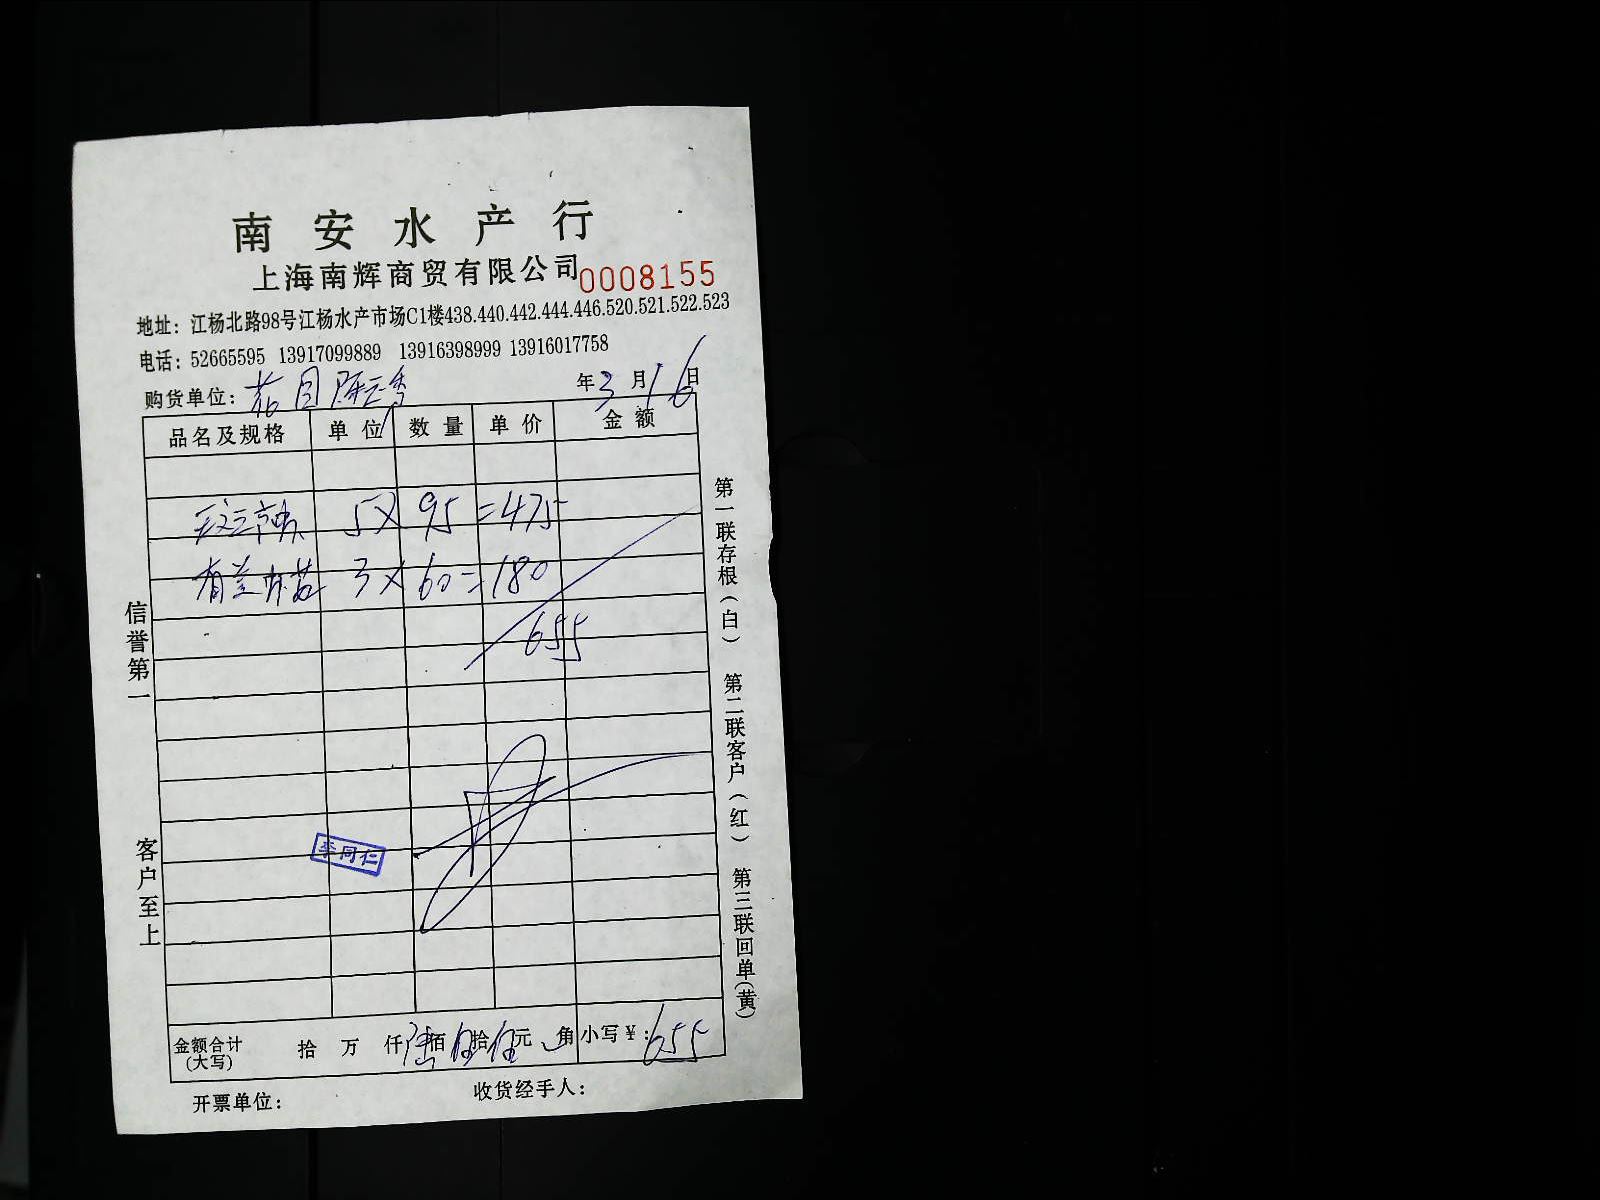 南安水产行
上海南辉商贸有限公司 0008155
地址：江杨北路98号江杨水产市场C1楼438.440.442.444.446.520.521.522.523
电话：52665595 13917099889 13916398999 13916017758
购货单位： 年3月16日
品名及规格 单位 数量 单价 金额
5×95=475
3×60=180
655
李同仁
金额合计(大写) 拾万仟陆佰伍拾伍元角 小写￥：655
开票单位： 收货经手人：
信誉第一
客户至上
第一联存根(白) 第二联客户(红) 第三联回单(黄)